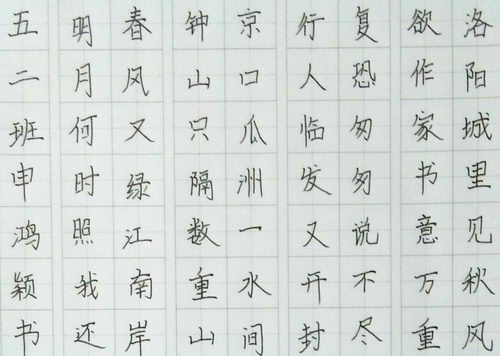 洛阳城里见秋风
欲作家书意万重
复恐匆匆说不尽
行人临发又开封
京口瓜洲一水间
钟山只隔数重山
春风又绿江南岸
明月何时照我还
五二班申鸿颖书